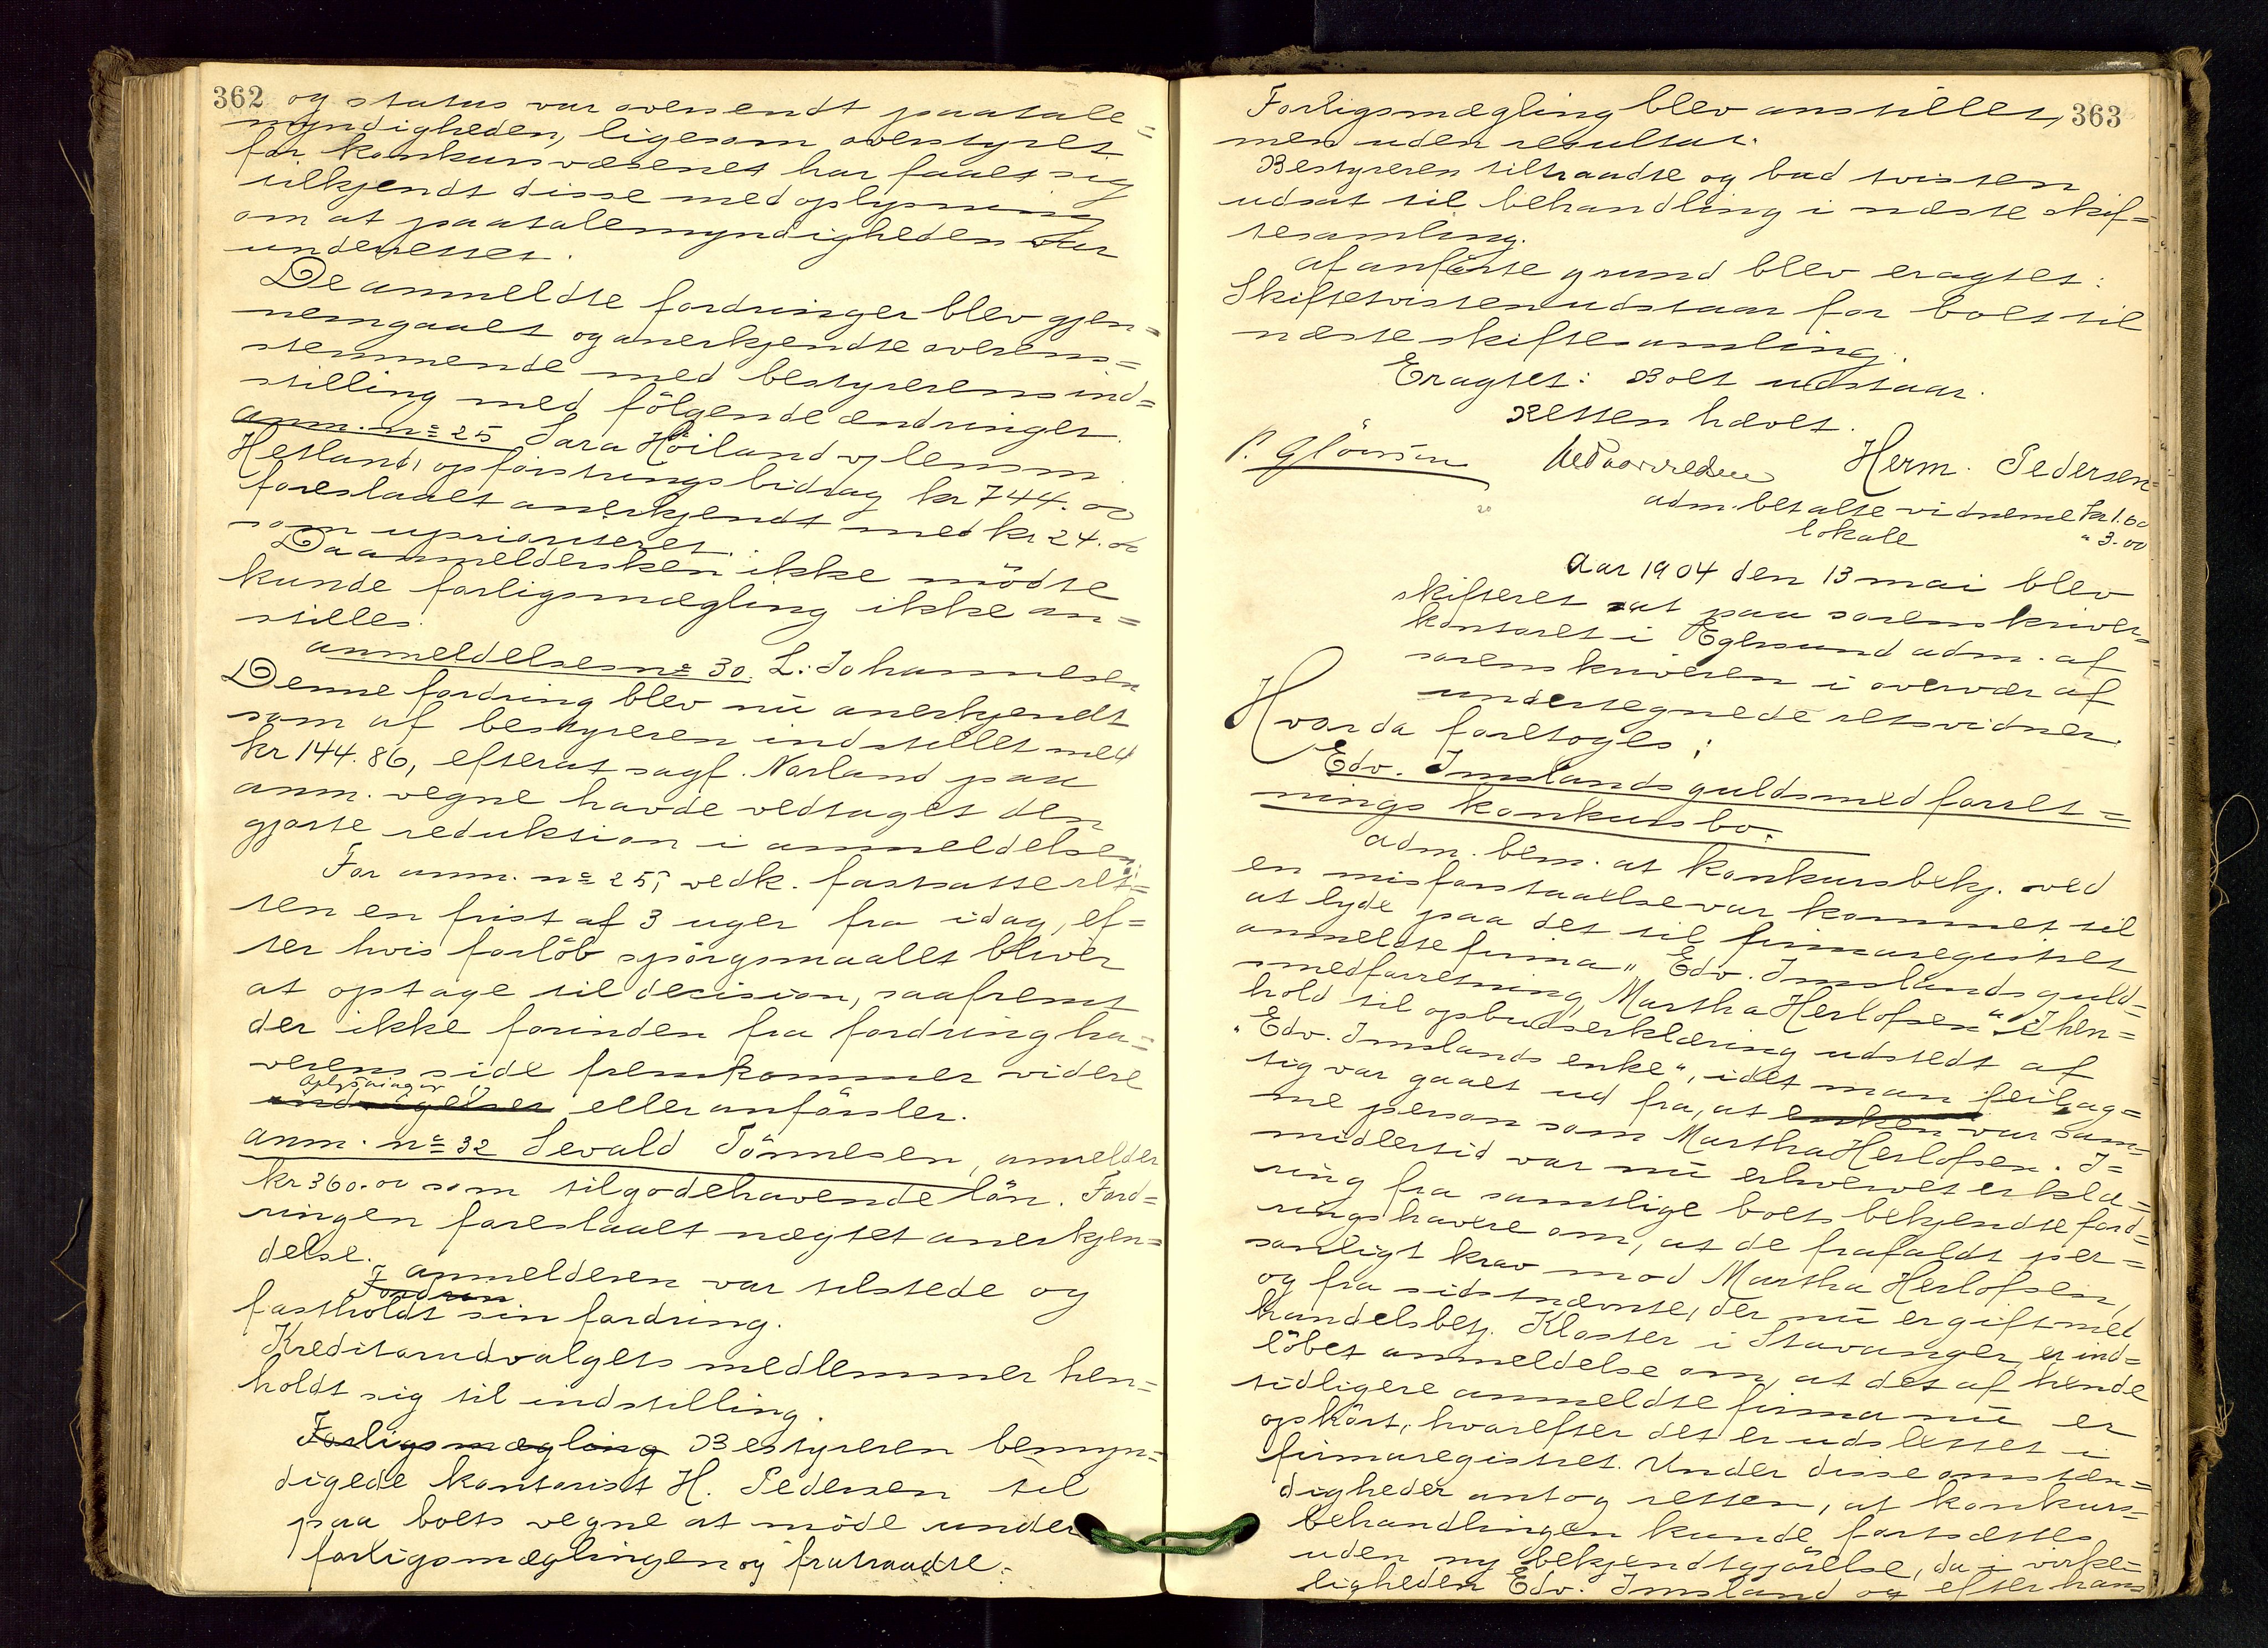 362 og status var oversendt paatale=
myndigheden, ligesom overstyret
for konkursvæsenet har faaet sig
tilkjendt disse med oplysning
om at paatalemyndigheden var
underettet.
De anmeldte fordringer blev gjen=
nemgaaet og anerkjendte overens=
stemmende med bestyrerens ind=
stilling med følgende ændringer.
anm. no 25 Sara Höiland v/ lensm.
Hetland, opfostringsbidrag kr 744.00
foreslaaet anerkjendt med kr 24.00
som uprioriteret.
Da anmeldersken ikke mödte
kunde forligsmægling ikke an=
stilles.
anmeldelsesno 30. L. Johannesen
Denne fordring blev nu anerkjendt
som af bestyreren indstillet med
kr 144.86, efterat sagf. Norland paa
anm. vegne havde vedtaget den
gjorte reduktion i anmeldelsen.
For anm. no 25, vedk. fastsatte ret=
ten en frist af 3 uger fra idag, ef=
ter hvis forlöb spörgsmaalet bliver
at optage til decision, saafremt
der ikke forinden fra fordringha=
verens side fremkommer videre
oplysninger
eller anförsler.
anm. no 32 Sevald Tönnesen, anmelder
kr 360.00 som tilgodehavende lön. Ford=
ringen foreslaaet nægtet anerkjen=
delse.
anmelderen var tilstede og
Fordren
fastholdt sin fordring.
Kreditorudvalgets medlemmer hen=
holdt sig til indstilling.
Forligsmægling Bestyreren bemyn=
digede kontorist H. Pedersen til
paa boets vegne at möde under
forligsmæglingen og fratraadte.
Forligsmægling blev anstillet, 363
men uden resultat.
Bestyreren tiltraadte og bad tvisten
udsat til behandling i næste skif=
tesamling.
af anförte grund blev eragtet:
Skiftetvisten udstaar for boet til
næste skiftesamling.
Eragtet: Boet udstaar.
Retten hævet.
P. Herm. Pedersen
adm. betalte vidnerne kr 1.60
lokale " 3.00
20
Aar 1904 den 13 mai blev
skifteret sat paa sorenskriver=
kontoret i Egersund adm. af
sorenskriveren i overvær af
undertegnede retsvidner.
Hvor da foretoges:
Edv. Imslands guldsmedforret=
nings konkursbo.
adm. bem. at konkursbekj. ved
en misforstaaelse var kommet til
at lyde paa det til firmaregistret
anmeldte firma "Edv. Imslands guld=
smedforretning, Martha Herlofsen" i hen=
hold til opbudserklæring udstedt af
"Edv. Imslands enke", idet man feilag=
tig var gaaet ud fra, at enken var sam=
me person som Martha Herlofsen. I=
midlertid var nu erhvervet erklæ=
ring fra samtlige boets bekjendte ford=
ringshavere om, at de frafaldt per=
sonligt krav mod Martha Herlofsen,
og fra sidstnævnte, der nu er gift med
handelsbetj. Kloster i Stavanger, er ind=
löbet anmeldelse om, at det af hende
tidligere anmeldte firma nu er
ophört, hvorefter det er udslettet i
firmaregistret. Under disse omstæn=
digheder antog retten, at konkurs=
behandlingen kunde fortsættes
uden ny bekjendtgjörelse, da i virke=
ligheden Edv. Imsland og efter hans